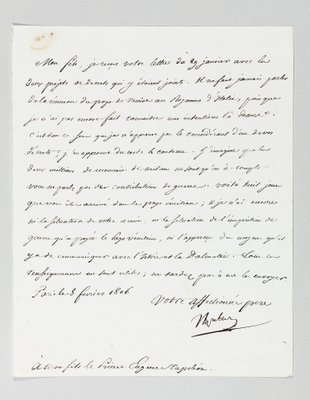 Mon fils, je reçois votre lettre du 29 janvier avec les
deux projets de décrets qui y étaient joints. Il ne faut jamais parler
de la réunion du pays de Venise au Royaume d'Italie, puisque
je n'ai pas encore fait connaître mes intentions là-dessus.
C'est dans ce sens que je n'approuve pas le considérant d'un de vos
décrets; j'en approuve du reste le contenu. J'imagine que les
deux millions de monnaie de ne sont qu'un à-compte
vous ne parlez pas des contributions de guerre. Voilà huit jours
que vous êtes arrivé dans les pays vénitiens, et je n'ai encore
ni la situation de votre armée, ni la situation de l'imposition de
guerre qu'a payée le Pays vénitien, ni l'apperçu du moyen qu'il
y a de communiquer avec l'Istrie et la Dalmatie. Tous ces
renseignemens me sont utiles; ne tardez pas à me les envoyer
Paris le 8 février 1806
Votre affectionné père
A mon fils le Prince Eugène Napoléon.